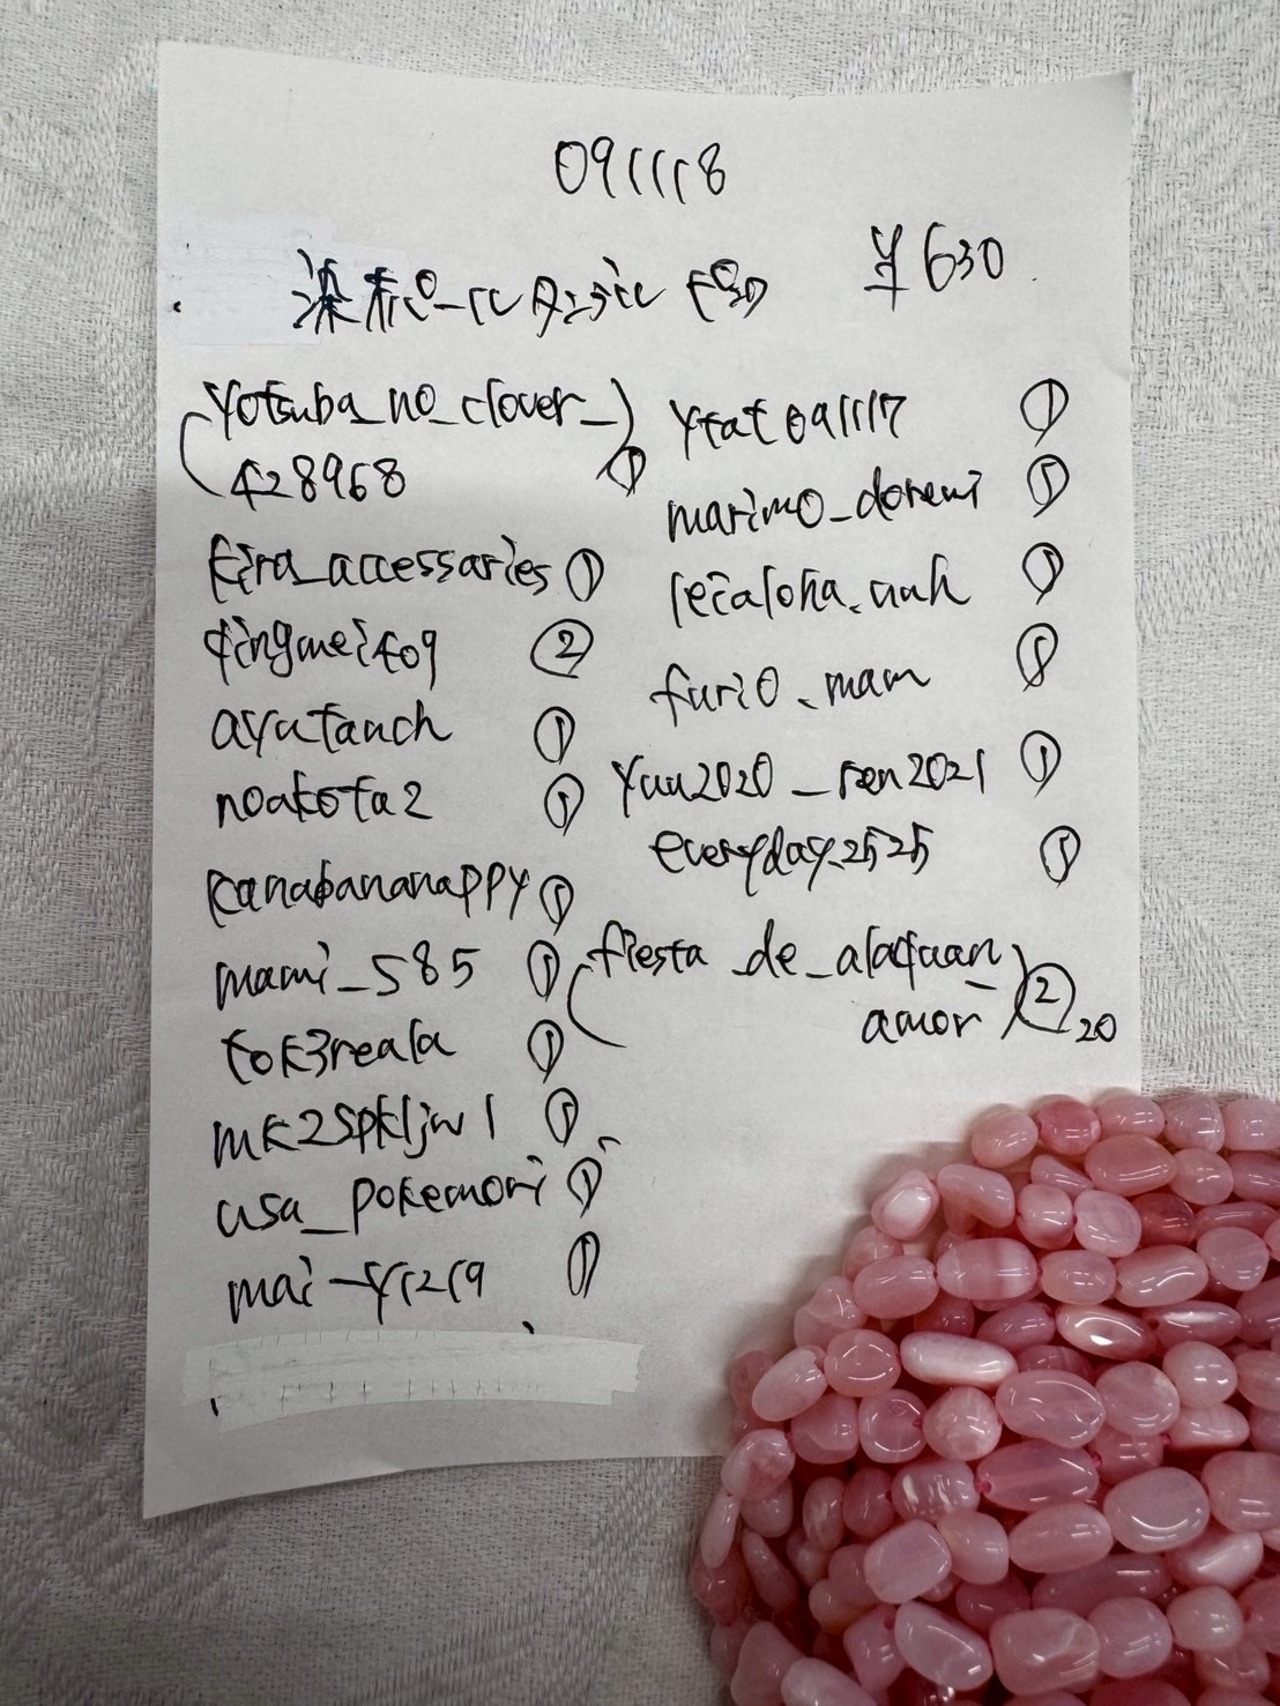 091118
¥630
yotsuba_no_clover_
428968 ①
kira_accessaries ①
qingmei409 ②
ayutanch ①
noakota2 ①
kanabananappy ①
mami_585 ①
tok3reala ①
mk2spkljw1 ①
usa_pokemori ①
mai-y1219 ①
ytat091117 ①
marimo_doremi ①
leialoha.uuh ①
furio.mam
yuu2020_ren2021 ①
everyday.2525 ①
fiesta_de_alaquan_
amor ② 20